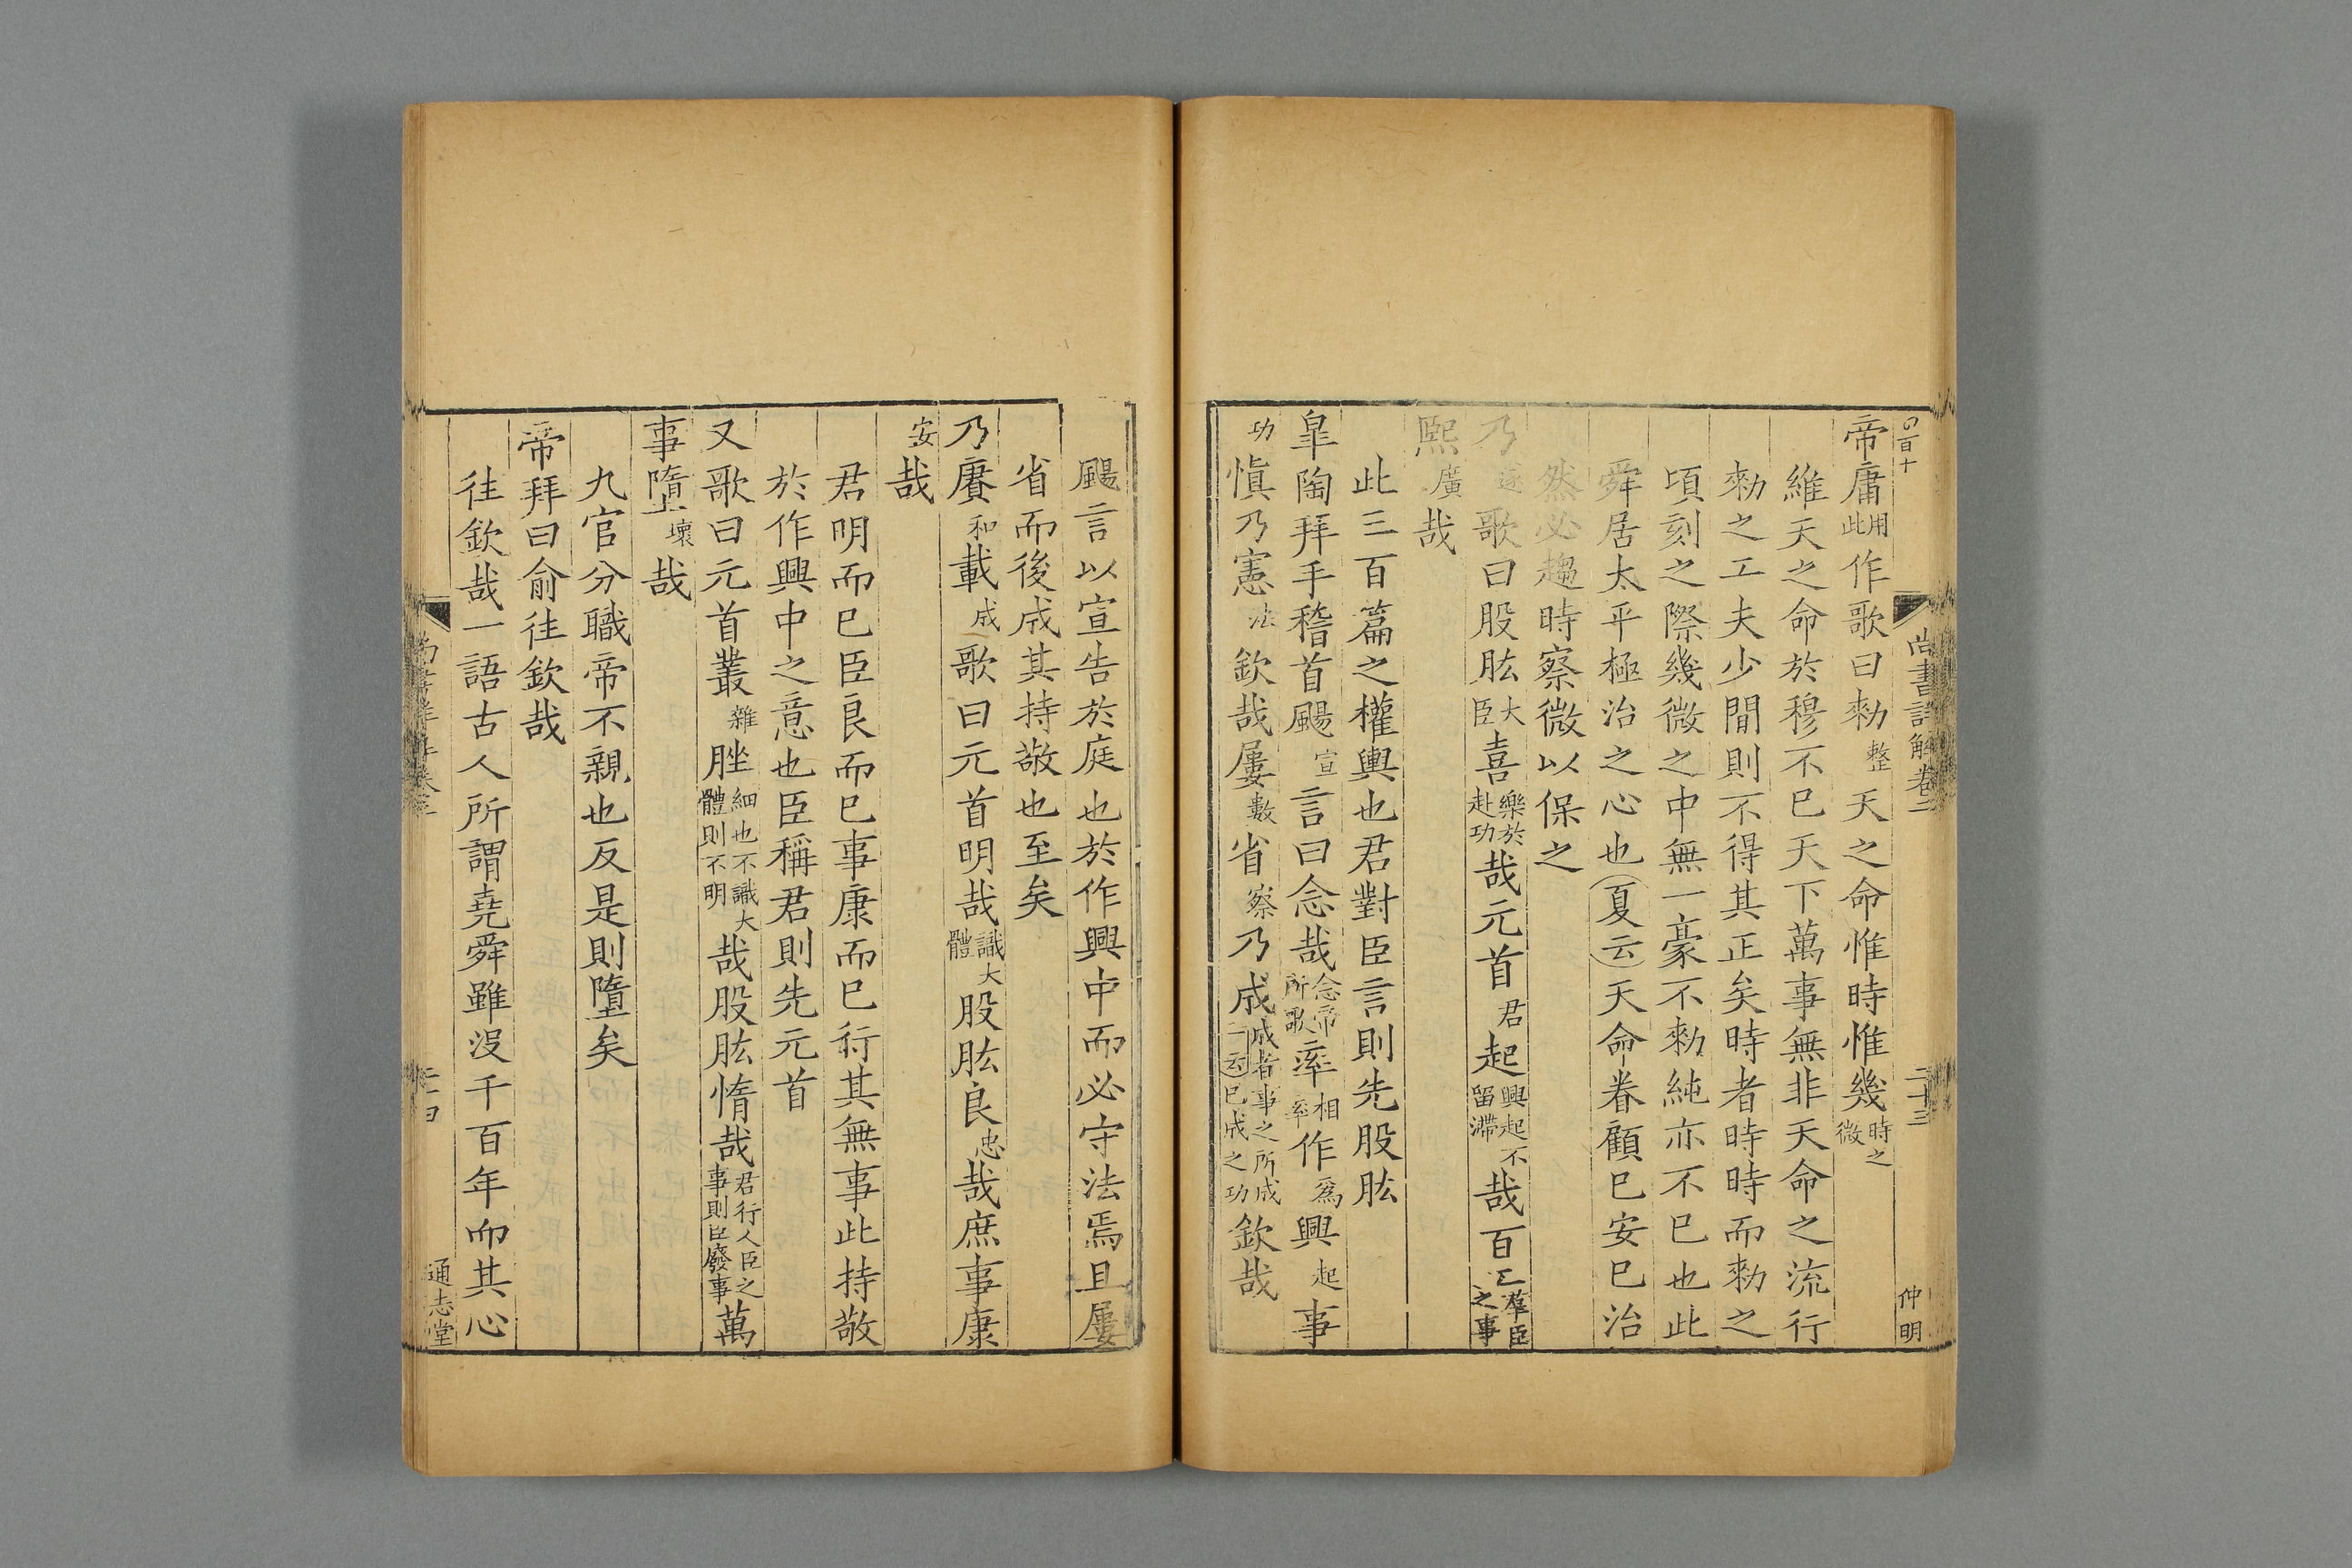 帝庸用此作歌曰勑整天之命惟時惟幾時之微
維天之命於穆不已天下萬事無非天命之流行
勑之工夫少閒則不得其正矣時者時時而勑之
頃刻之際幾微之中無一豪不勑純亦不已也此
舜居太平極治之心也夏云天命眷顧已安已治
然必趨時察微以保之
乃遂歌曰股肱大臣喜樂於赴功哉元首君起興起不留滯哉百工羣臣之事
熙廣哉
此三百篇之權輿也君對臣言則先股肱
皐陶拜手稽首颺宣言曰念哉念帝所歌率相率作爲興起事
功愼乃憲法欽哉屢數省察乃成成者事之所成一云已成之功欽哉
尚書詳解卷二
二十三
仲明
颺言以宣告於庭也於作興中而必守法焉且屢
省而後成其持敬也至矣
乃賡和載成歌曰元首明哉識大體股肱良忠哉庶事康
安哉
君明而已臣良而已事康而已行其無事此持敬
於作興中之意也臣稱君則先元首
又歌曰元首叢雜脞細也不識大體則不明哉股肱惰哉君行人臣之事則臣廢事萬
事墮壞哉
九官分職帝不親也反是則墮矣
帝拜曰俞往欽哉
往欽哉一語古人所謂堯舜雖沒千百年而其心
二十四
通志堂